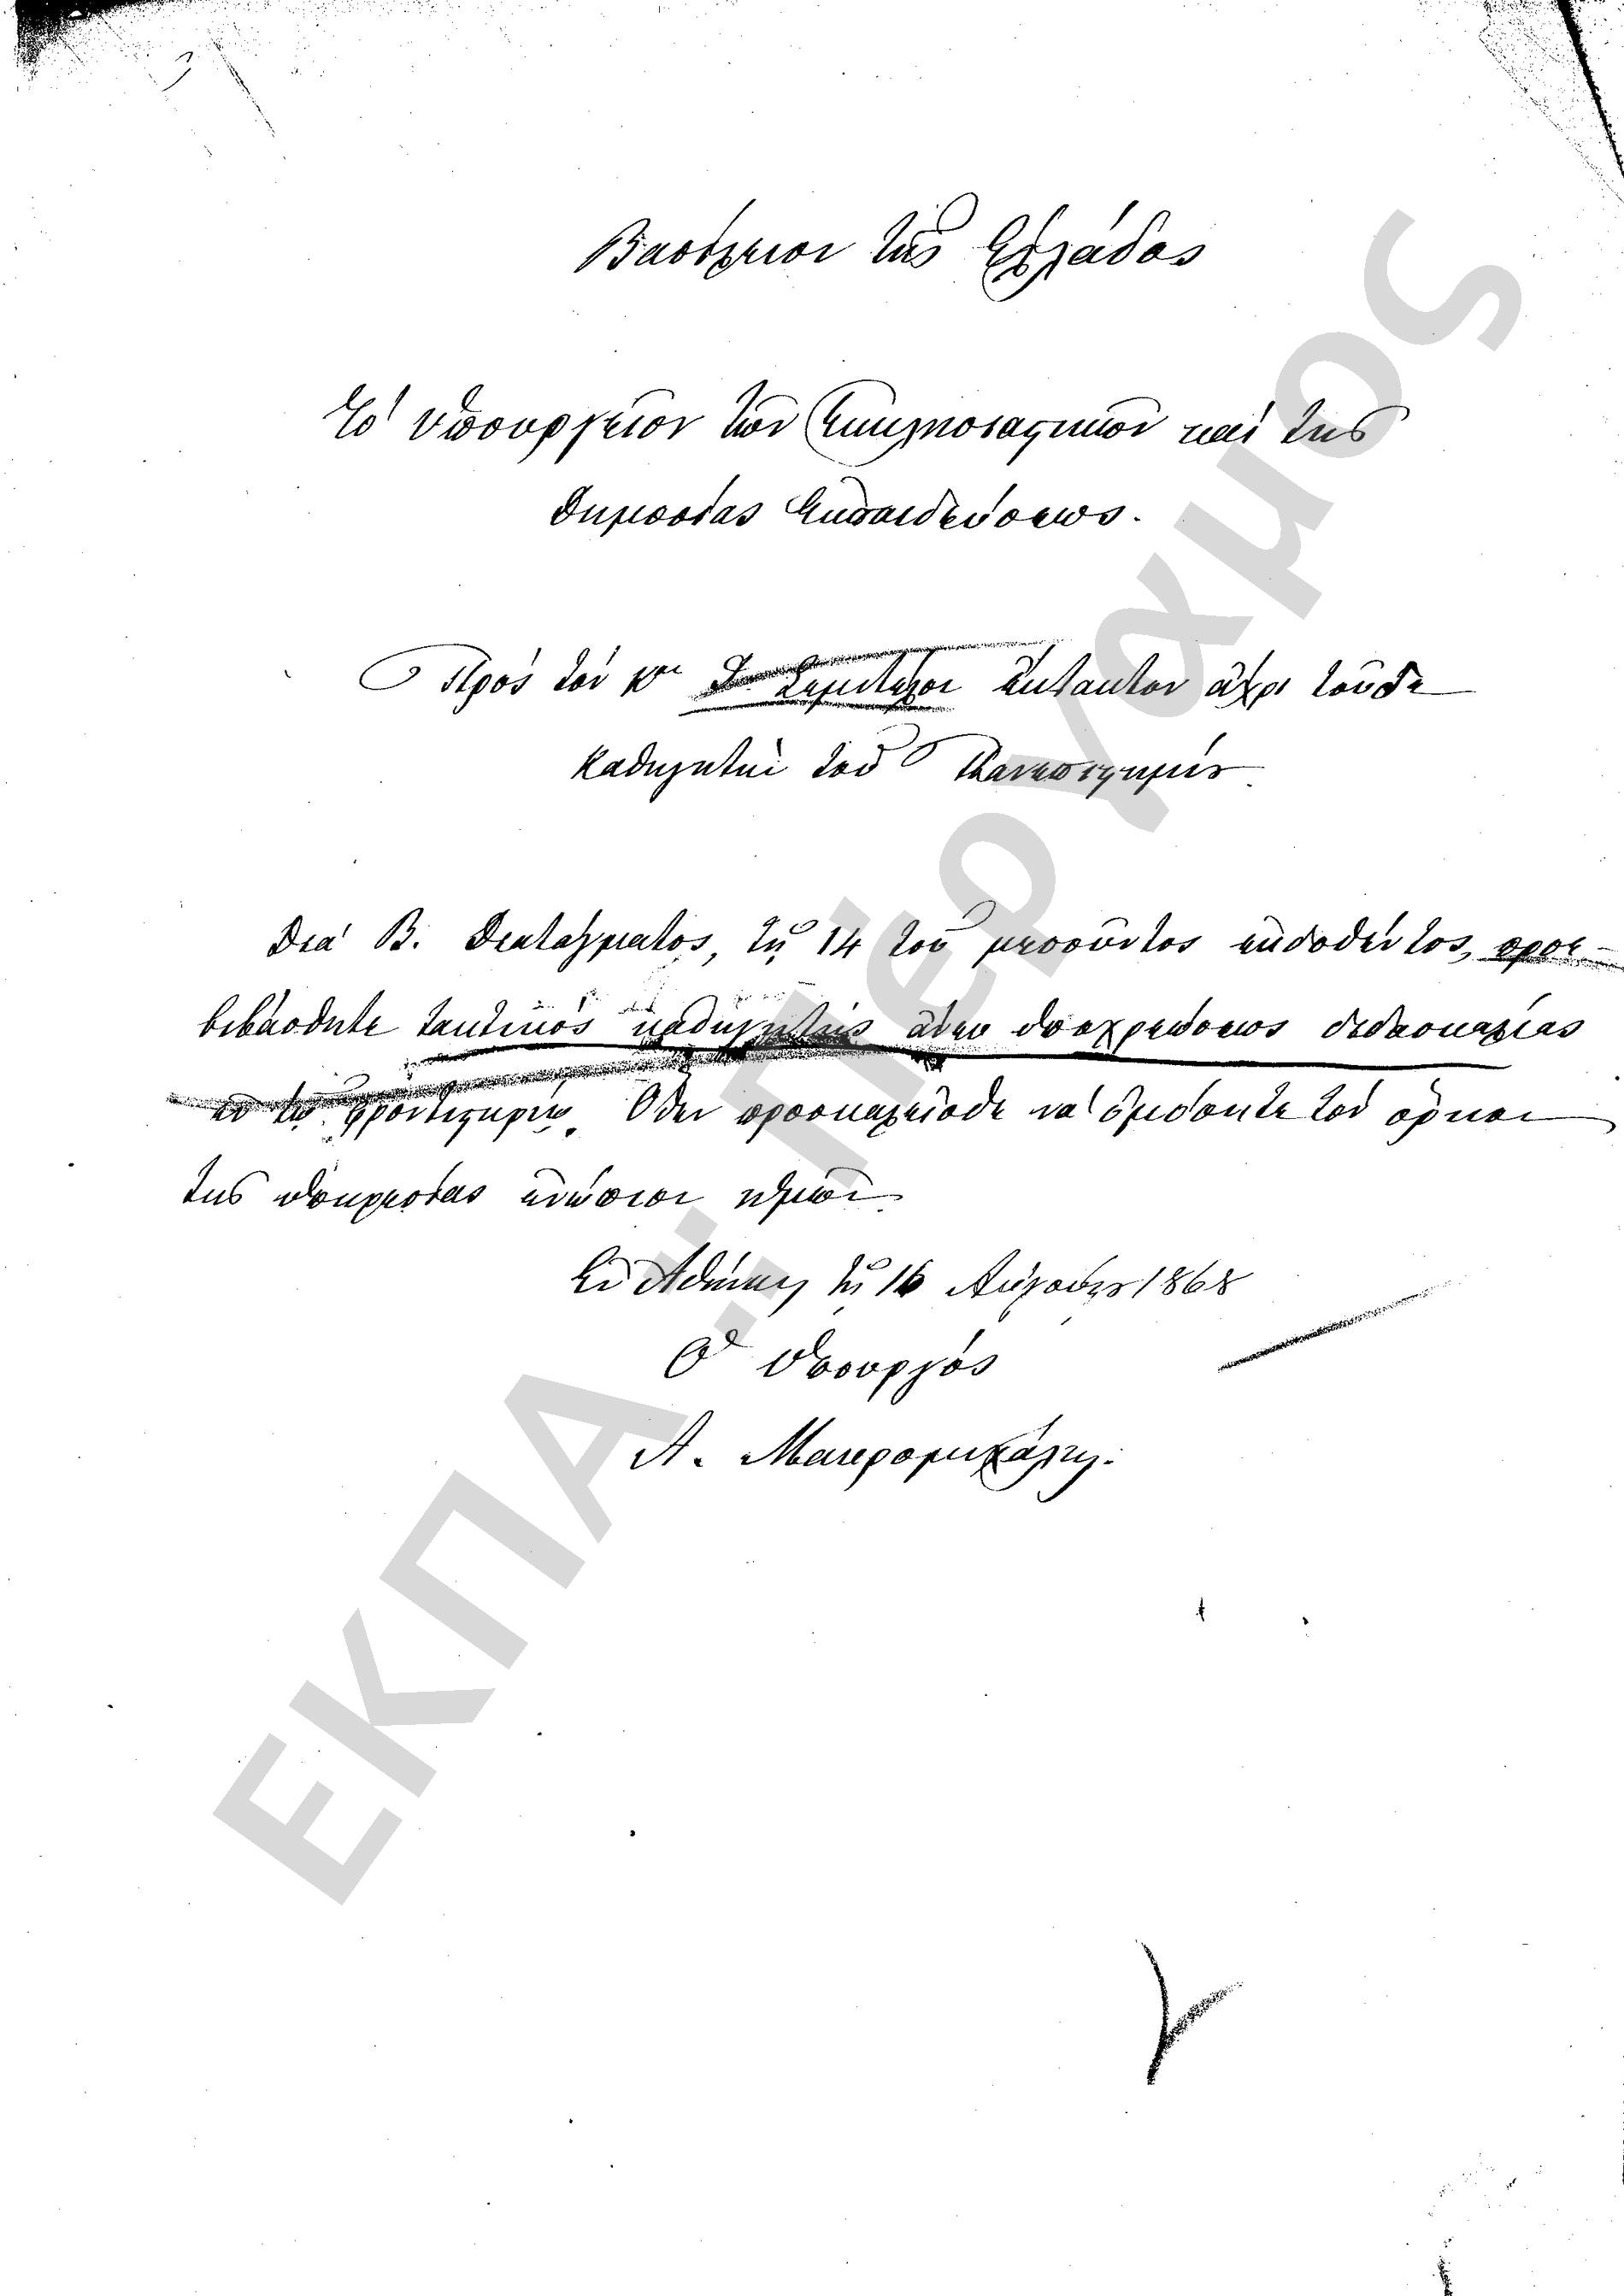 Βασίλειον τῆς Ἑλλάδος
Τὸ Ὑπουργεῖον τῶν Ἐκκλησιαστικῶν καὶ τῆς
Δημοσίας Ἐκπαιδεύσεως.
Πρὸς τὸν κον ἔκτακτον ἄχρι τοῦδε
καθηγητὴν τοῦ Πανεπιστημίου
Διὰ Β. Διατάγματος, τῇ 14 τοῦ μεσοῦντος ἐκδοθέντος, προε-
βιβάσθητε τακτικὸς καθηγητὴς ἄνευ ὑποχρεώσεως διδασκαλίας
ἐν τῷ φροντιστηρίῳ. Ὅθεν προσκαλεῖσθε νὰ δώσητε τὸν ὅρκον
τῆς ὑπηρεσίας ἐνώπιον ἡμῶν
Ἐν Ἀθήναις τῇ 16 Αὐγούστου 1868
Ὁ Ὑπουργός
Α. Μαυρομιχάλης.
ΕΚΠΑ - Πέργαμος